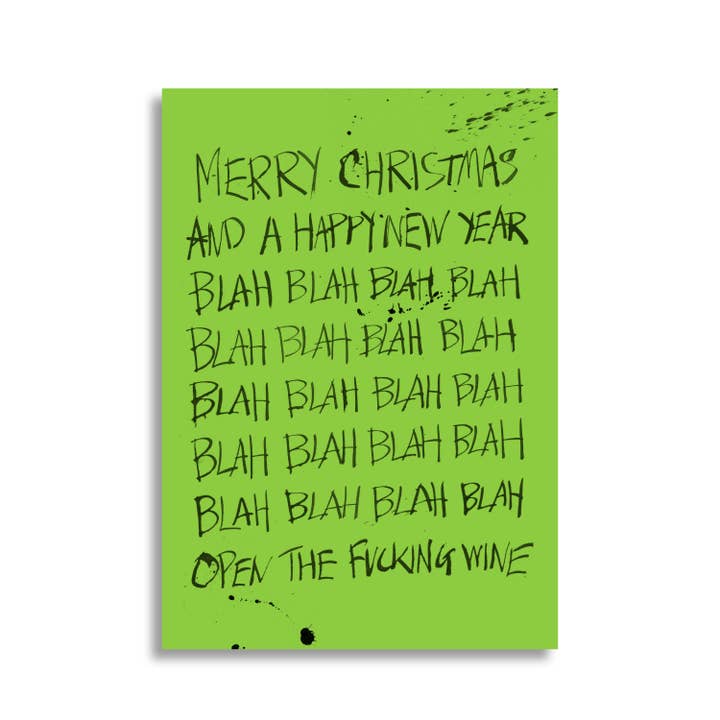 MERRY CHRISTMAS
AND A HAPPY NEW YEAR
BLAH BLAH BLAH BLAH
BLAH BLAH BLAH BLAH
BLAH BLAH BLAH BLAH
BLAH BLAH BLAH BLAH
BLAH BLAH BLAH BLAH
OPEN THE FUCKING WINE